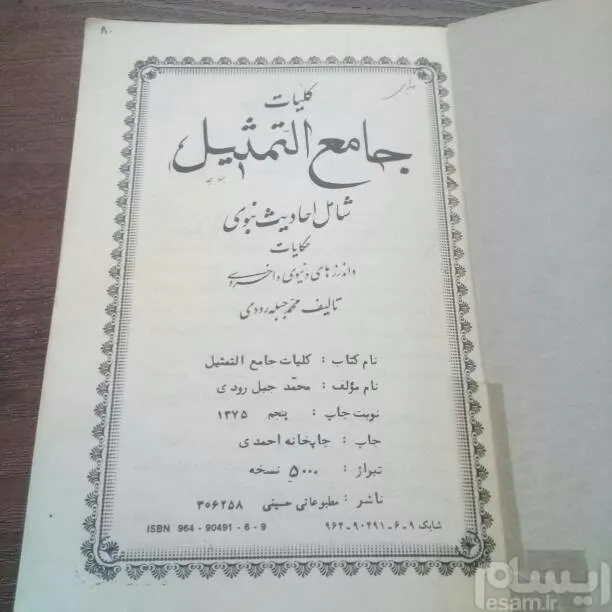 ۸۰
کلیات
جامع التمثیل
شامل احادیث نبوی
حکایات
و اندرزهای دنیوی و اخروی
تالیف محمد جبله رودی
نام کتاب : کلیات جامع التمثیل
نام مؤلف : محمّد جبل رودی
نوبت چاپ : پنجم ۱۳۷۵
چاپ : چاپخانه احمدی
تیراژ : ۵۰۰۰ نسخه
ناشر : مطبوعاتی حسینی ۳۰۶۲۵۸
شابک ۹-۶-۹۰۴۹۱-۹۶۴ ISBN 964 - 90491 - 6 - 9
ایسام
esam.ir